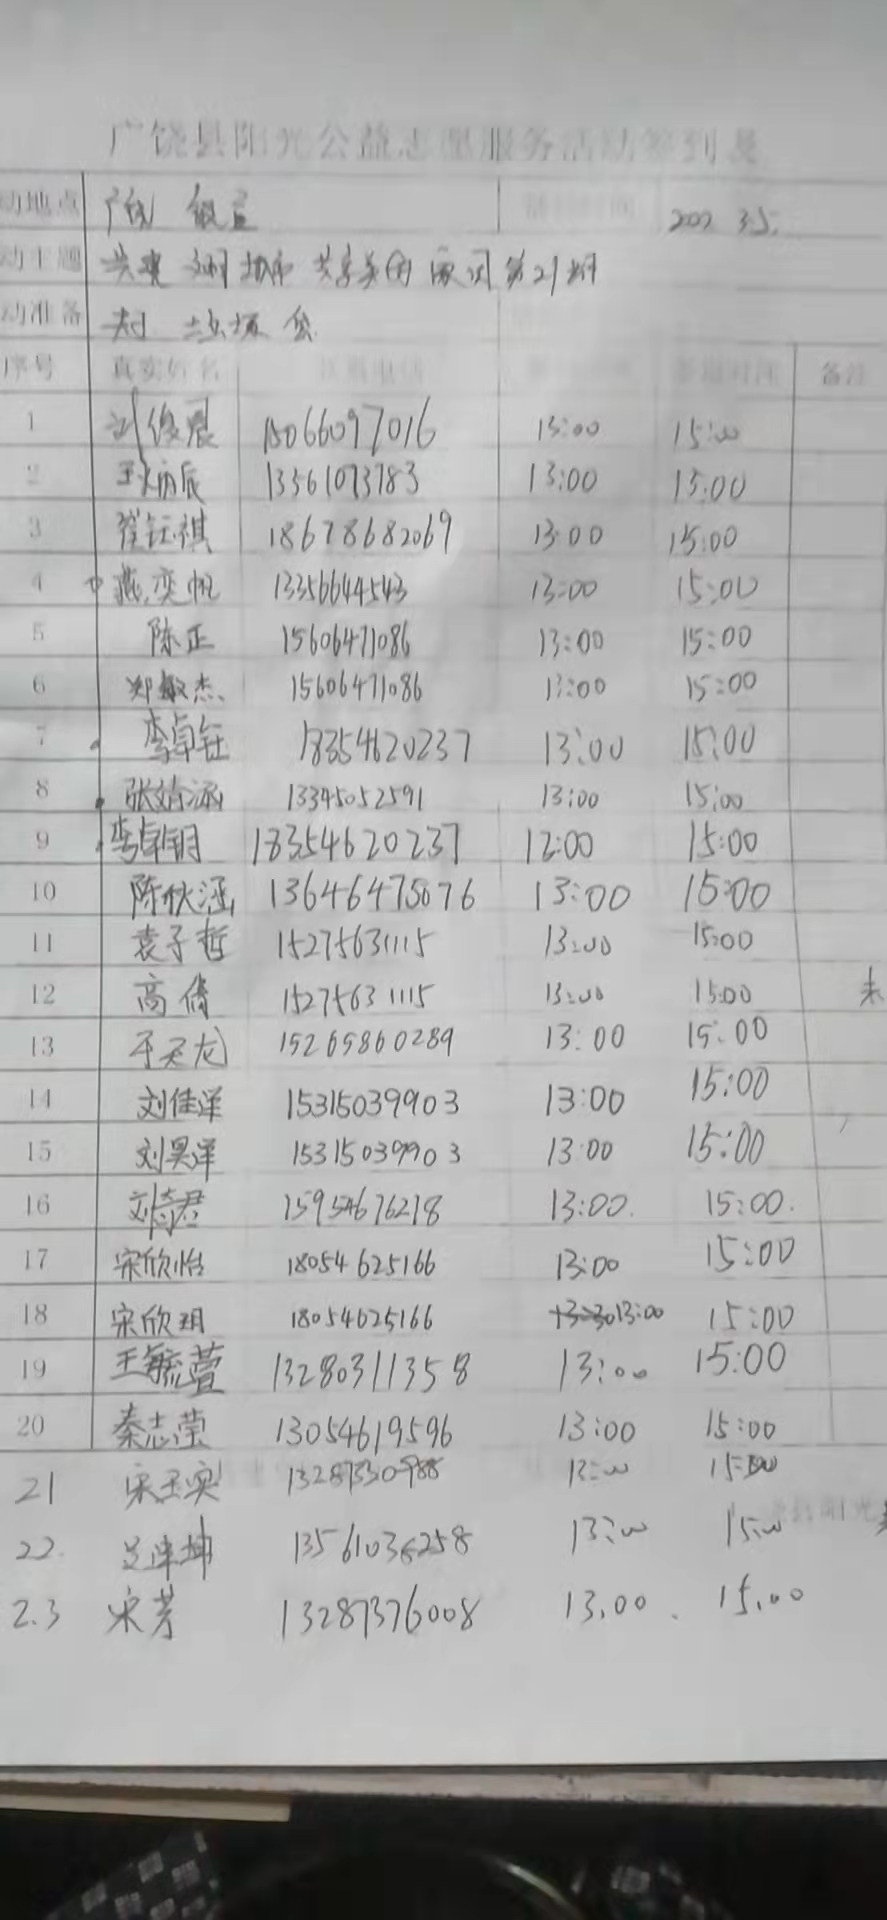 广饶县阳光公益志愿服务活动签到表
动地点
动主题 共建文明城市 共享美好 第21期
动准备
序号 真实姓名 联系电话 备注
1 刘俊晨 15066097016 13:00 15:00
2 王炳辰 13561073783 13:00 15:00
3 崔钰祺 18678682069 13:00 15:00
4 燕奕帆 13356644543 13:00 15:00
5 陈正 15606471086 13:00 15:00
6 郑敏杰 15606471086 13:00 15:00
7 李卓钰 18354620237 13:00 15:00
8 张靖涵 13345052591 13:00 15:00
9 李卓玥 18354620237 13:00 15:00
10 陈秋涵 13646475076 13:00 15:00
11 袁子哲 15275631115 13:00 15:00
12 高倩 15275631115 13:00 15:00 未
13 15265860289 13:00 15:00
14 刘佳洋 15315039903 13:00 15:00
15 刘昊洋 15315039903 13:00 15:00
16 15954676218 13:00. 15:00.
17 宋欣怡 18054625166 13:00 15:00
18 宋欣玥 18054625166 13:00 15:00
19 王毓萱 13280311358 13:00 15:00
20 秦志莹 13054619596 13:00 15:00
21 13287330988 13:00 15:00
22. 13561036258 13:00 15:00
2.3 宋芳 13287376008 13.00 15.00